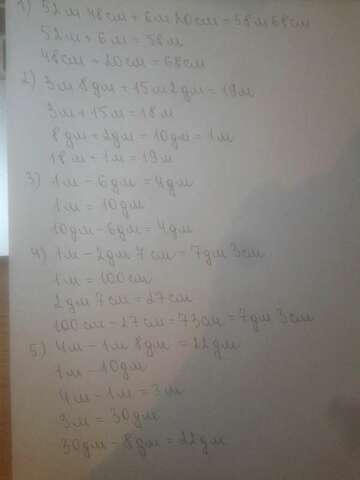 1) 52м 48см + 6м 20см = 58м 68см
52м + 6м = 58м
48см + 20см = 68см
2) 3м 8дм + 15м 2дм = 19м
3м + 15м = 18м
8дм + 2дм = 10дм = 1м
18м + 1м = 19м
3) 1м - 6дм = 4дм
1м = 10дм
10дм - 6дм = 4дм
4) 1м - 2дм 7см = 7дм 3см
1м = 100см
2дм 7см = 27см
100см - 27см = 73см = 7дм 3см
5) 4м - 1м 8дм = 22дм
1м - 10дм
4м - 1м = 3м
3м = 30дм
30дм - 8дм = 22дм